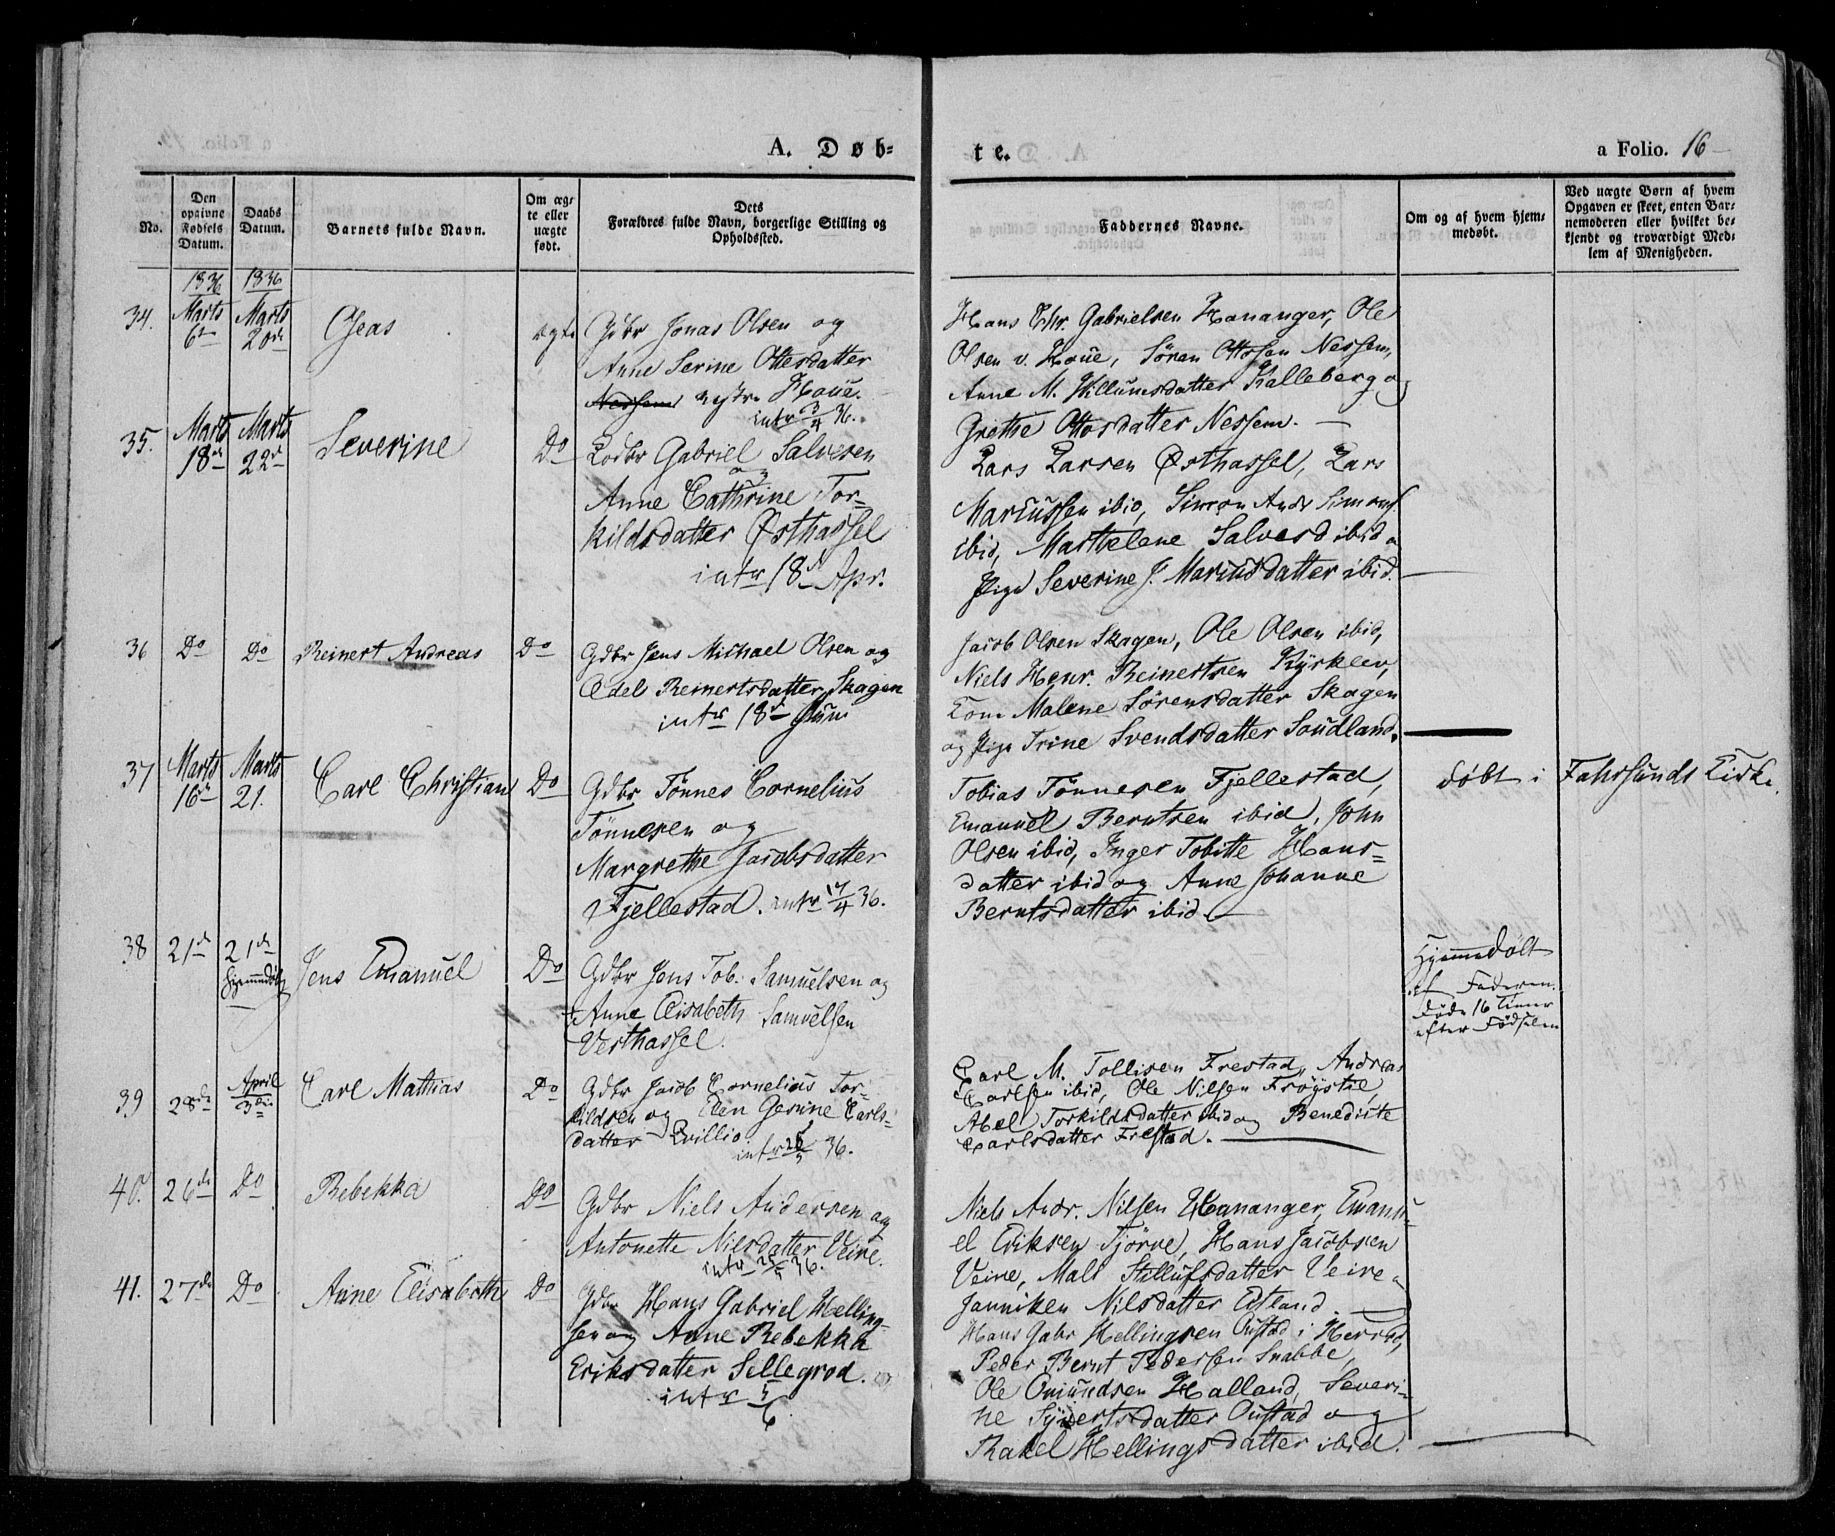 A. Døb-
te.
a Folio. 16
No.
Den opgivne Fødsels Datum.
Daabs Datum.
Barnets fulde Navn.
Om ægte eller uægte født.
Dets Forældres fulde Navn, borgerlige Stilling og Opholdssted.
Faddernes Navne.
Om og af hvem hjemmedøbt.
Ved uægte Børn af hvem Opgaven er skeet, enten Barnemoderen eller hvilket bekjendt og troværdigt Medlem af Menigheden.
1836 1836
34. Marts 6te Marts 20de
ægte
Gdbr Jonas Olsen og
Anne Serine Ottesdatter
Nessem vestre Houe.
intr 3/4 36.
Hans Chr. Gabrielsen Hananger, Ole
Olsen v. Houe, Sören Ottosen Nessem,
Anne M. Villumsdatter Kalleberg og
Grethe Ottosdatter Nessem. —
35. Marts 18de Marts 22de Severine Do
Lodbr Gabriel Salvesen
og
Anne Cathrine Tor-
kildsdatter Østhassel
intr 18de Apr.
Lars Larsen Østhassel, Lars
Mariussen ibid, Simon Andr Simons
ibid, Marthelene Salvesd ibid o
Pige Severine J. Mariusdatter ibid.
36 Do Do Reinert Andreas Do
Gdbr Jens Michael Olsen og
Edel Reinertsdatter Skagen
intr 18de Juni
Jacob Olsen Skagen, Ole Olsen ibid,
Niels Henr. Reinertsen Kjörklev,
Kone Malene Sörensdatter Skagen
og Pige Trine Svendsdatter Soudland.
37 Marts 16de Marts 21. Carl Christian Do
Gdbr Tönnes Cornelius
Tönnesen og
Margrethe Jacobsdatter
Fjellestad. intr 17/4 36.
Tobias Tönnesen Fjellestad,
Emanuel Berntsen ibid, John
Olsen ibid, Inger Tobitte Hans-
datter ibid og Anne Johanne
Berntsdatter ibid. —
døbt i Fahrsunds Kirke.
38 21de 21de Hjemmedøbt Jens Emanuel Do
Gdbr Jens Tob. Samuelsen og
Anne Elisabeth Samuelsen
Vesthassel.
Hjemmedøbt
af Faderen.
Døde 16 Timer
efter Fødselen
39 28de April 3die Carl Mathias Do
Gdbr Jacob Cornelius Tor-
kildsen og Elen Gerine Carls-
datter Qvillio
intr 36.
Carl M. Tollisen Frestad, Andreas
Carlsen ibid, Ole Nilsen Fröystøl,
Abel Torkildsdatter ibid og Benedicte
Carlsdatter Frestad. —
40. 26de Do Rebekka Do
Gdbr Niels Andersen og
Antonette Nilsdatter Veine.
intr 36.
Niels Andr. Nilsen Hananger, Emanu-
el Eriksen Tjörve, Hans Jacobsen
Veine, Mali Stillufsdatter Veine
Janniken Nilsdatter Etland. —
41. 27de Do Anne Elisabeth Do
Gdbr Hans Gabriel Helling-
sen og Anne Rebekka
Eriksdatter Sellegrod.
intr 5/6
Hans Gabr Hellingsen Oustad i Herred,
Peder Bernt Pedersen Snabbe,
Ole Omundsen Halland, Severi-
ne Syvertsdatter Oustad og
Rakel Hellingsdatter ibid.